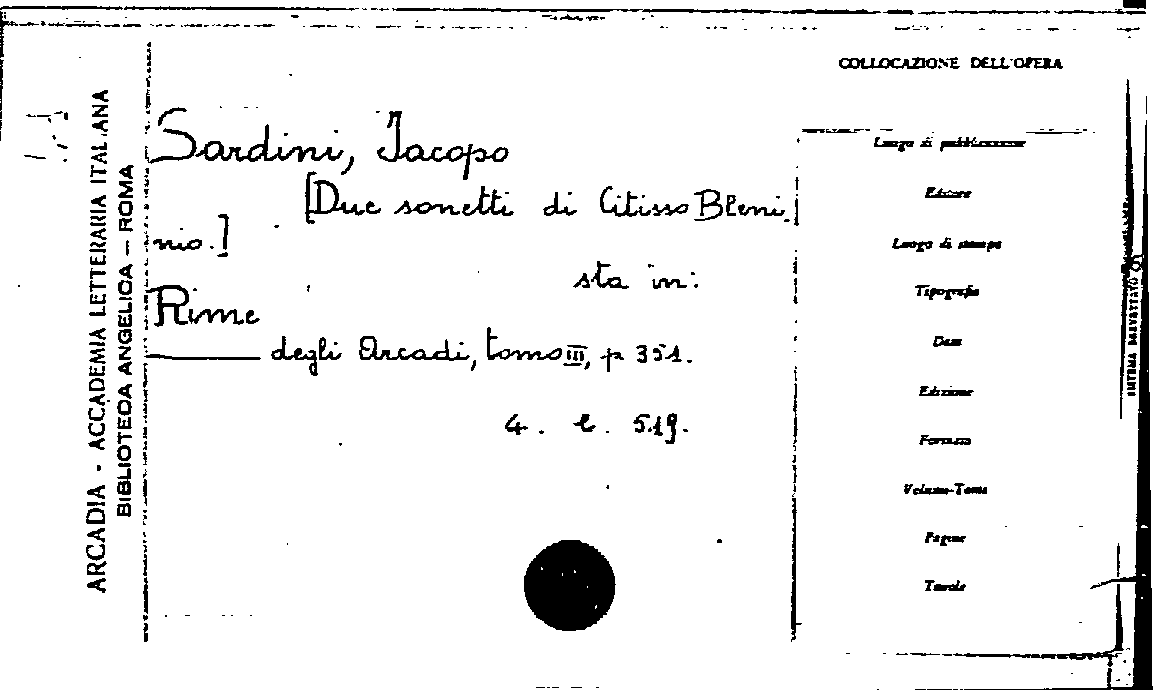 COLLOCAZIONE DELL'OPERA
ARCADIA - ACCADEMIA LETTERARIA ITALIANA
BIBLIOTECA ANGELICA — ROMA
Sardini, Jacopo
[Due sonetti di Citisso Bleni
nio.]
sta in:
Rime
degli Arcadi, tomo III, p 351.
4. l. 519.
Luogo di pubblicazione
Editore
Luogo di stampa
Tipografia
Data
Edizione
Formato
Volume-Tomo
Pagine
Tavole